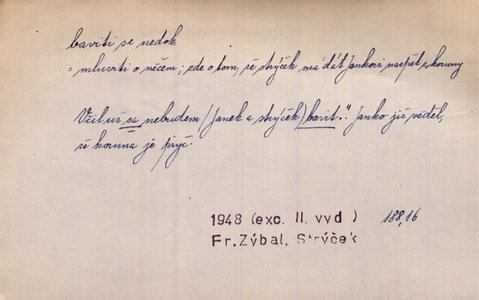 baviti se nedok.
= mluviti o něčem; zde o tom, že strýček má dát Jankovi nazpět z koruny
Včil už sa nebudem (Janek a strýček) bavit." Janko již věděl,
že koruna je pryč.
1948 (exc. II. vyd.) 188,16
Fr. Zýbal, Strýček